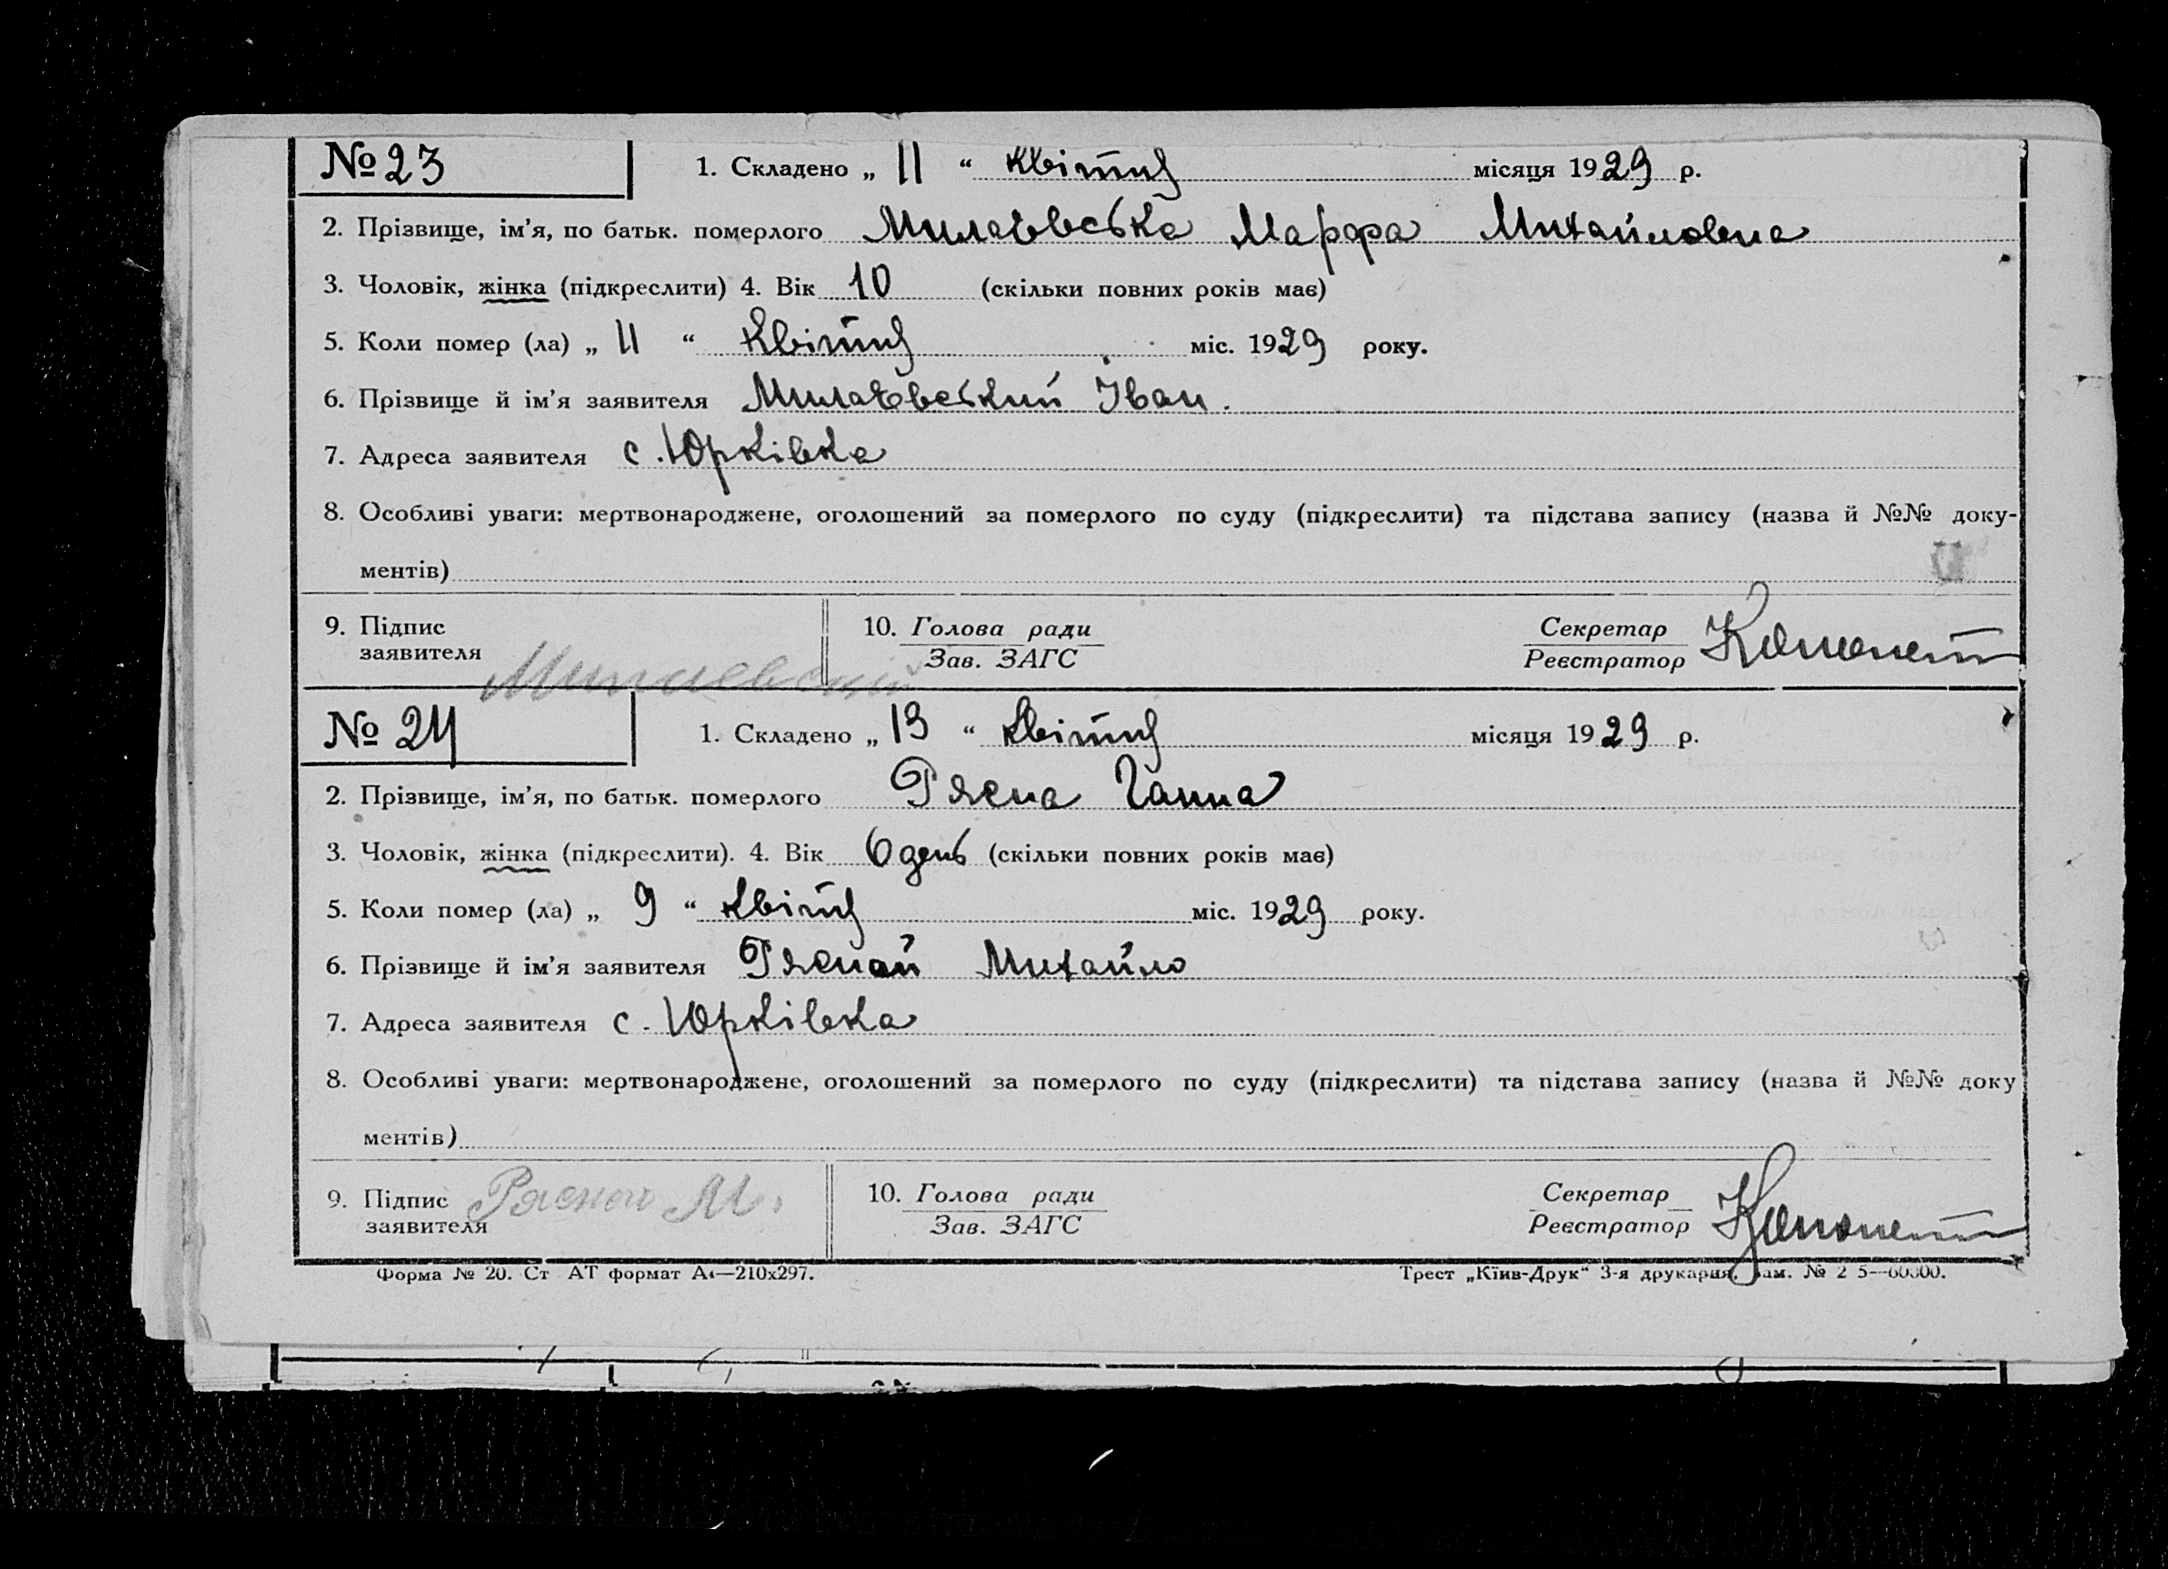 № 23 1. Складено „ 11 “ квітня місяця 1929 р.
2. Прізвище, ім’я, по батьк. померлого Милаєвська Марфа Михайловна
3. Чоловік, жінка (підкреслити) 4. Вік 10 (скільки повних років має)
5. Коли помер (ла) „ 11 “ квітня міс. 1929 року.
6. Прізвище й ім’я заявителя Милаєвський Іван.
7. Адреса заявителя с. Юрківка
8. Особливі уваги: мертвонароджене, оголошений за померлого по суду (підкреслити) та підстава запису (назва й №№ доку-
ментів)
9. Підпис заявителя Милаевский 10. Голова ради Зав. ЗАГС Секретар Реєстратор
№ 24 1. Складено „ 13 “ квітня місяця 1929 р.
2. Прізвище, ім’я, по батьк. померлого Рясна Ганна
3. Чоловік, жінка (підкреслити). 4. Вік 6 день (скільки повних років має)
5. Коли помер (ла) „ 9 “ квітня міс. 1929 року.
6. Прізвище й ім’я заявителя Рясной Михайло
7. Адреса заявителя с. Юрківка
8. Особливі уваги: мертвонароджене, оголошений за померлого по суду (підкреслити) та підстава запису (назва й №№ доку
ментів)
9. Підпис заявителя Рясной М. 10. Голова ради Зав. ЗАГС Секретар Реєстратор
Форма № 20. Ст АТ формат А4—210х297. Трест „Київ-Друк“ 3-я друкарня.